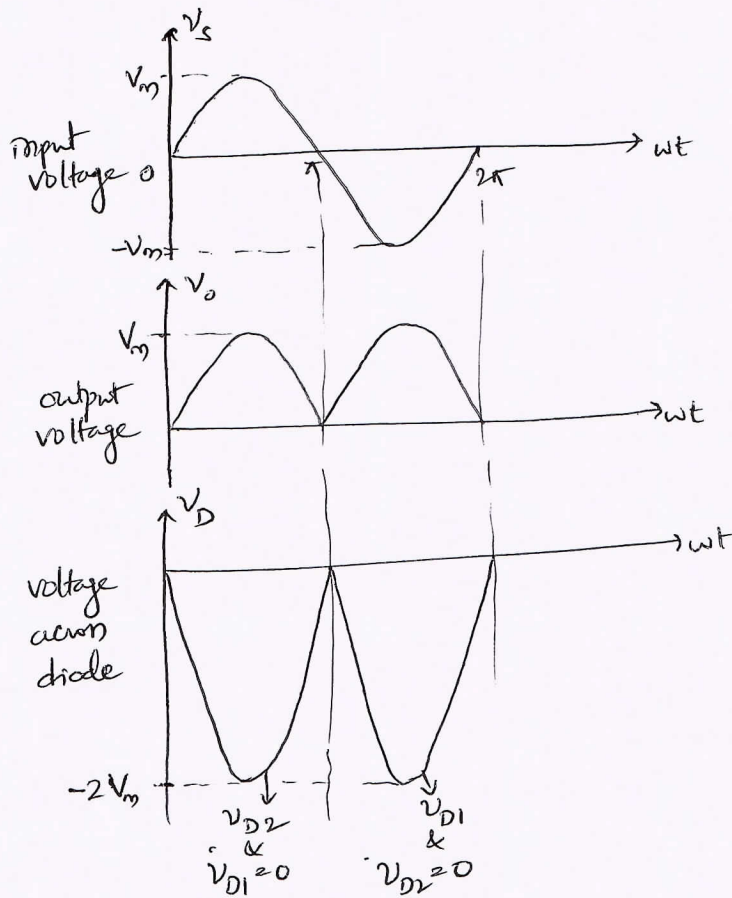 νs
Vm
input
voltage 0
π
2π
ωt
-Vm
νo
Vm
output
voltage
ωt
νD
ωt
voltage
across
diode
-2Vm
νD2
&
νD1=0
νD1
&
νD2=0